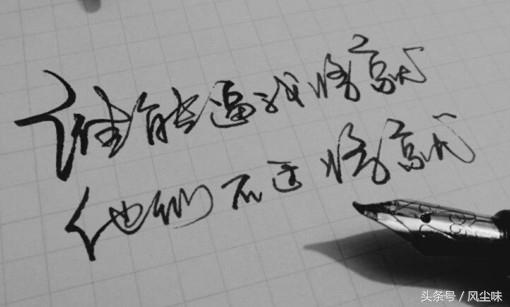 谁能逼我将就
他们不过将就
头条号 / 风尘味